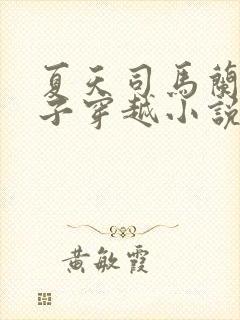 夏天司馬蘭
子穿越小說
黃敏霞